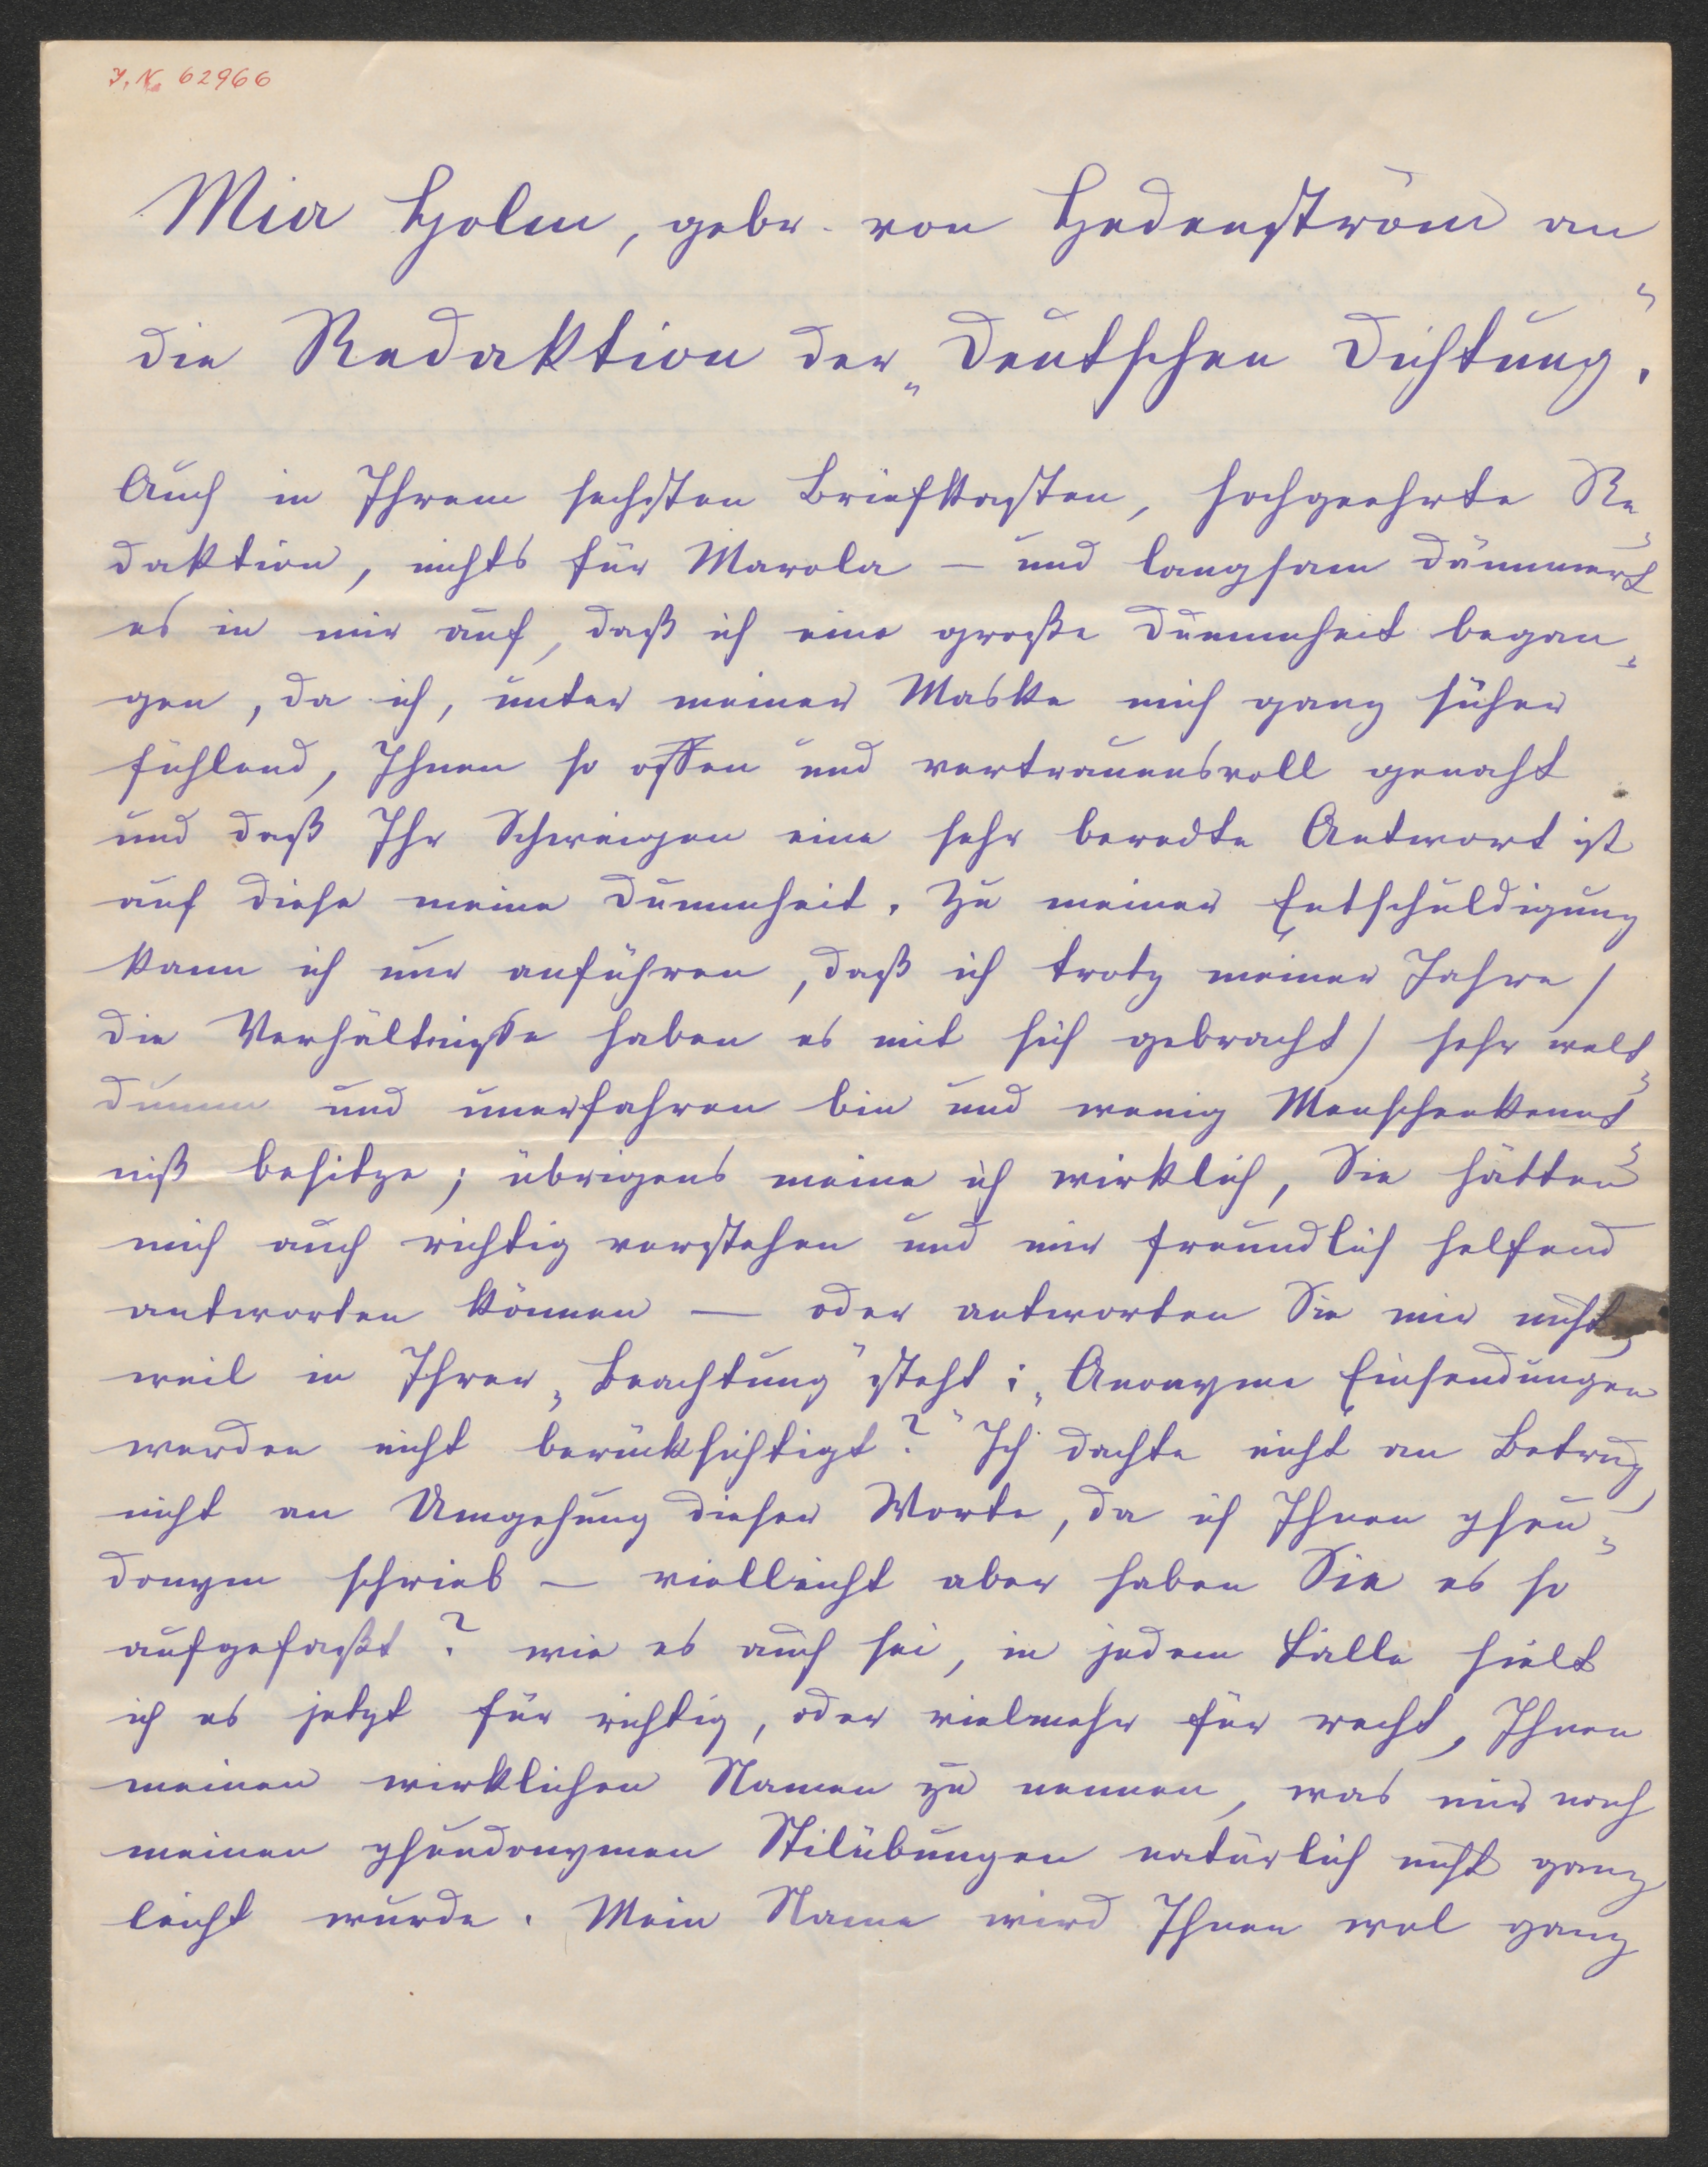 J. N. 62966
Mia Holm, gebr. von Hedenström an
die Redaktion der „Deutschen Dichtung“.
Auch in Ihrem sechsten Briefkasten, hochgeehrte Re-
daktion, nichts für Marola — und langsam dämmert
es in mir auf, daß ich eine große Dummheit began-
gen, da ich, unter meiner Maske mich ganz sicher
fühlend, Ihnen so offen und vertrauensvoll genaht
und daß Ihr Schweigen eine sehr beredte Antwort ist
auf diese meine Dummheit. Zu meiner Entschuldigung
kann ich nur anführen, daß ich trotz meiner Jahre /
die Verhältnisse haben es mit sich gebracht / sehr welt-
dumm und unerfahren bin und wenig Menschenkennt-
niß besitze; übrigens meine ich wirklich, Sie hätten
mich auch richtig verstehen und mir freundlich helfend
antworten können — oder antworten Sie mir nicht,
weil in Ihrer „Beachtung“ steht: „Anonyme Einsendungen
werden nicht berücksichtigt?“ Ich dachte nicht an Betrug,
nicht an Umgehung dieser Worte, da ich Ihnen pseu-
donym schrieb — vielleicht aber haben Sie es so
aufgefaßt? wie es auch sei, in jedem Falle hielt
ich es jetzt für richtig, oder vielmehr für recht, Ihnen
meinen wirklichen Namen zu nennen, was mir nach
meinen pseudonymen Stilübungen natürlich nicht ganz
leicht wurde. Mein Name wird Ihnen wol ganz